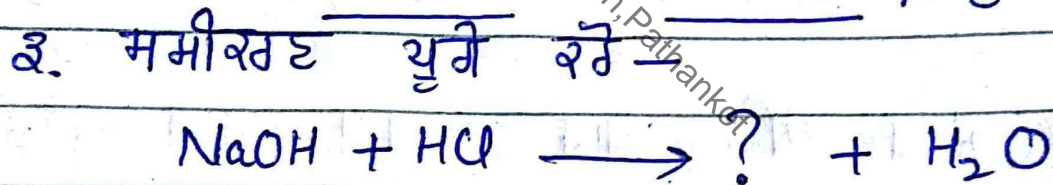 3. ਸਮੀਕਰਣ ਪੂਰੀ ਕਰੋ –
NaOH + HCl ⟶ ? + H₂O
Pathankot